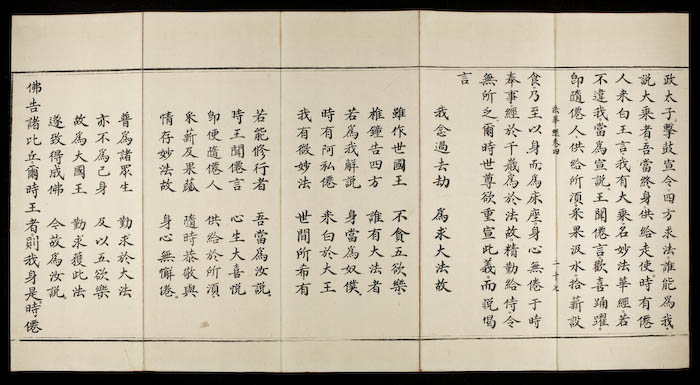 政太子擊鼓宣令四方求法誰能為我
說大乘者吾當終身供給走使時有僊
人來白王言我有大乘名妙法華經若
不違我當為宣說王聞僊言歡喜踊躍
即隨僊人供給所須采果汲水拾薪設
法華經卷四 二十七
食乃至以身而為床座身心無倦于時
奉事經於千歲為於法故精勤給侍令
無所乏爾時世尊欲重宣此義而說偈
言
我念過去劫 為求大法故
雖作世國王 不貪五欲樂
椎鍾告四方 誰有大法者
若為我解說 身當為奴僕
時有阿私僊 來白於大王
我有微妙法 世間所希有
若能修行者 吾當為汝說
時王聞僊言 心生大喜悅
即便隨僊人 供給於所須
采薪及果蓏 隨時恭敬與
情存妙法故 身心無懈倦
普為諸眾生 勤求於大法
亦不為己身 及以五欲樂
故為大國王 勤求獲此法
遂致得成佛 今故為汝說
佛告諸比丘爾時王者則我身是時僊